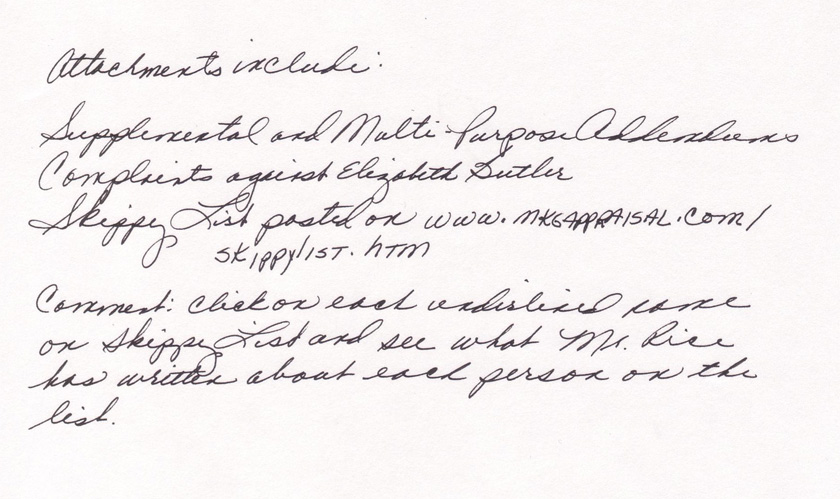 Attachments include:
Supplemental and Multi-Purpose Addendums
Complaints against Elizabeth Butler
Skippy List posted on www.mkgappraisal.com/
skippylist.htm
Comment: click on each underlined name
on Skippy List and see what Mr. Rice
has written about each person on the
list.